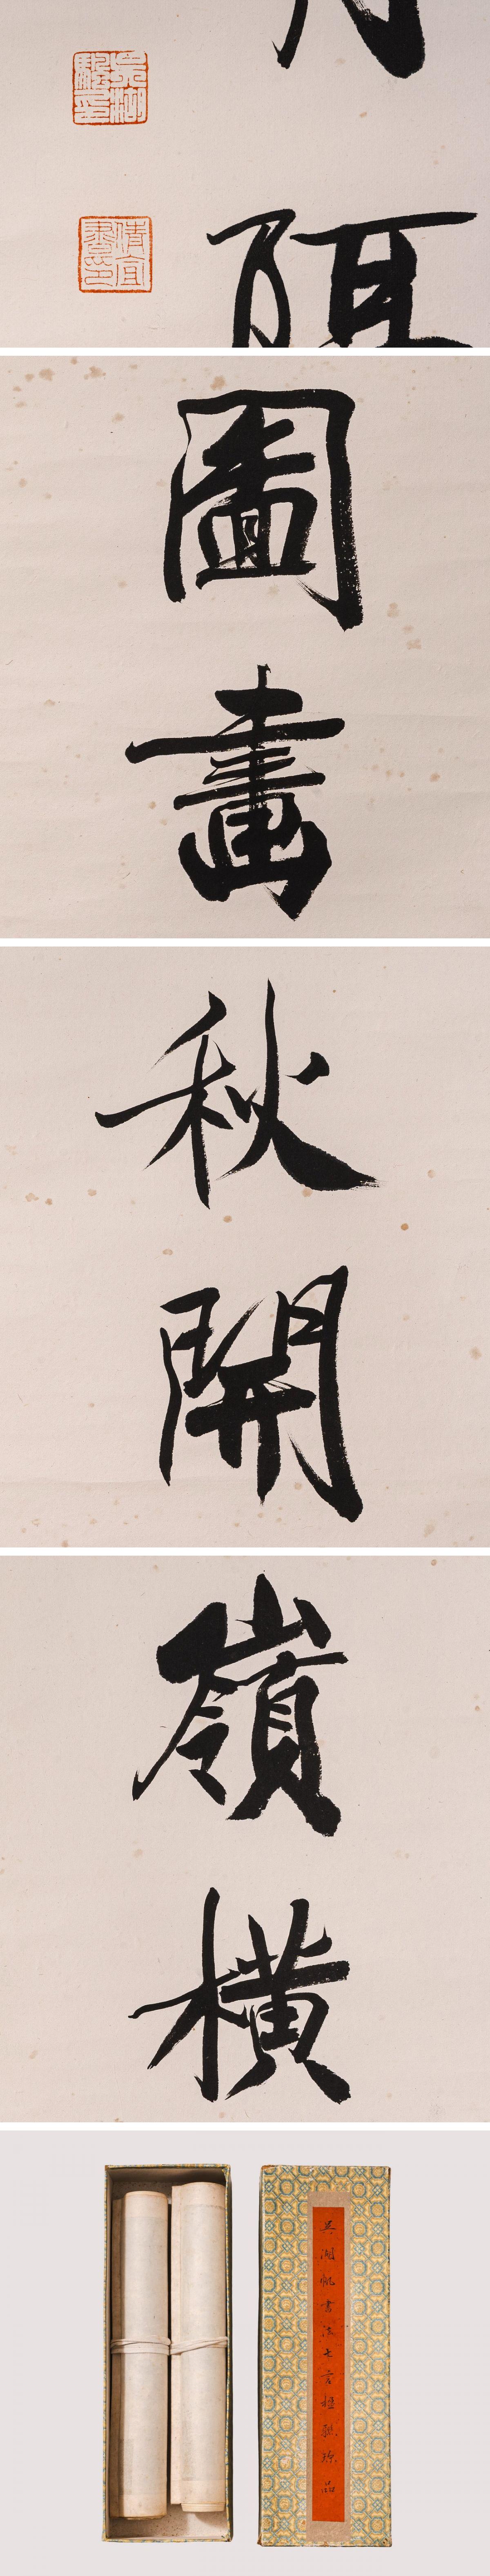 吳湖颿印
圖畫
秋開
嶺橫
吳湖帆書法七言楹聯珍品